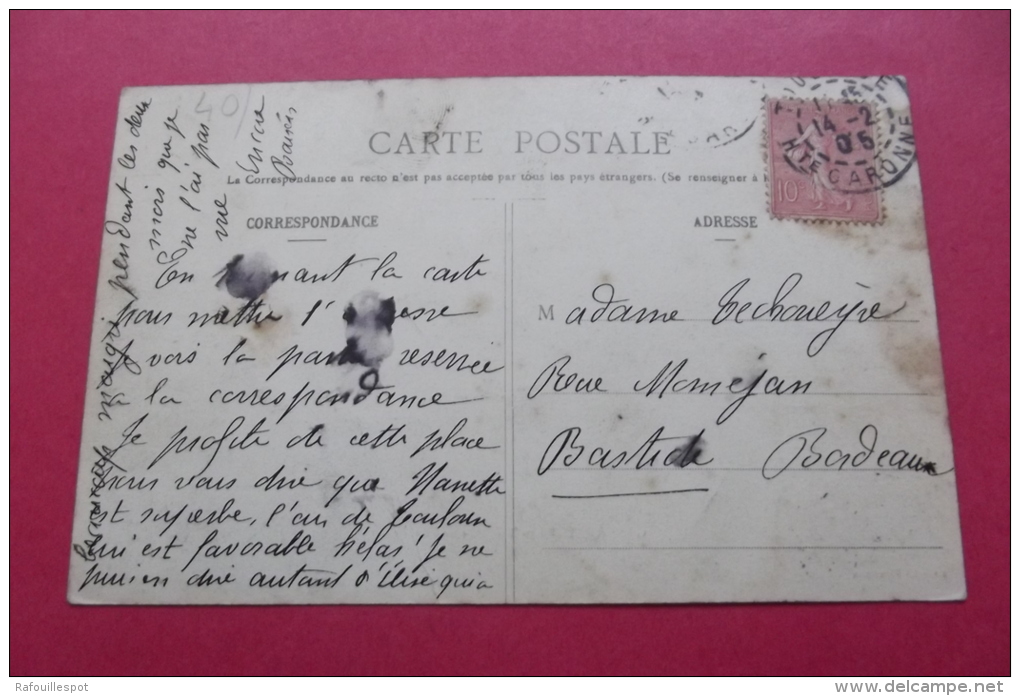 CARTE POSTALE
La Correspondance au recto n'est pas acceptée par tous les pays étrangers. (Se renseigner à
CORRESPONDANCE
ADRESSE
En nant la carte
pour mettre l' esse
Je vois la partie reservée
à la correspondance
Je profite de cette place
pour vous dire que Nanette
est superbe, l'air de Toulouse
lui est favorable hélas! Je ne
puis en dire autant d'Elise qui a
maigri pendant les deux
mois que je
ne l'ai pas
vue
40/
Madame Techoueyre
Rue Moméjan
Bastide Bordeaux
14 -2
05
HTE GARONNE
10
Rafouillespot
www.delcampe.net